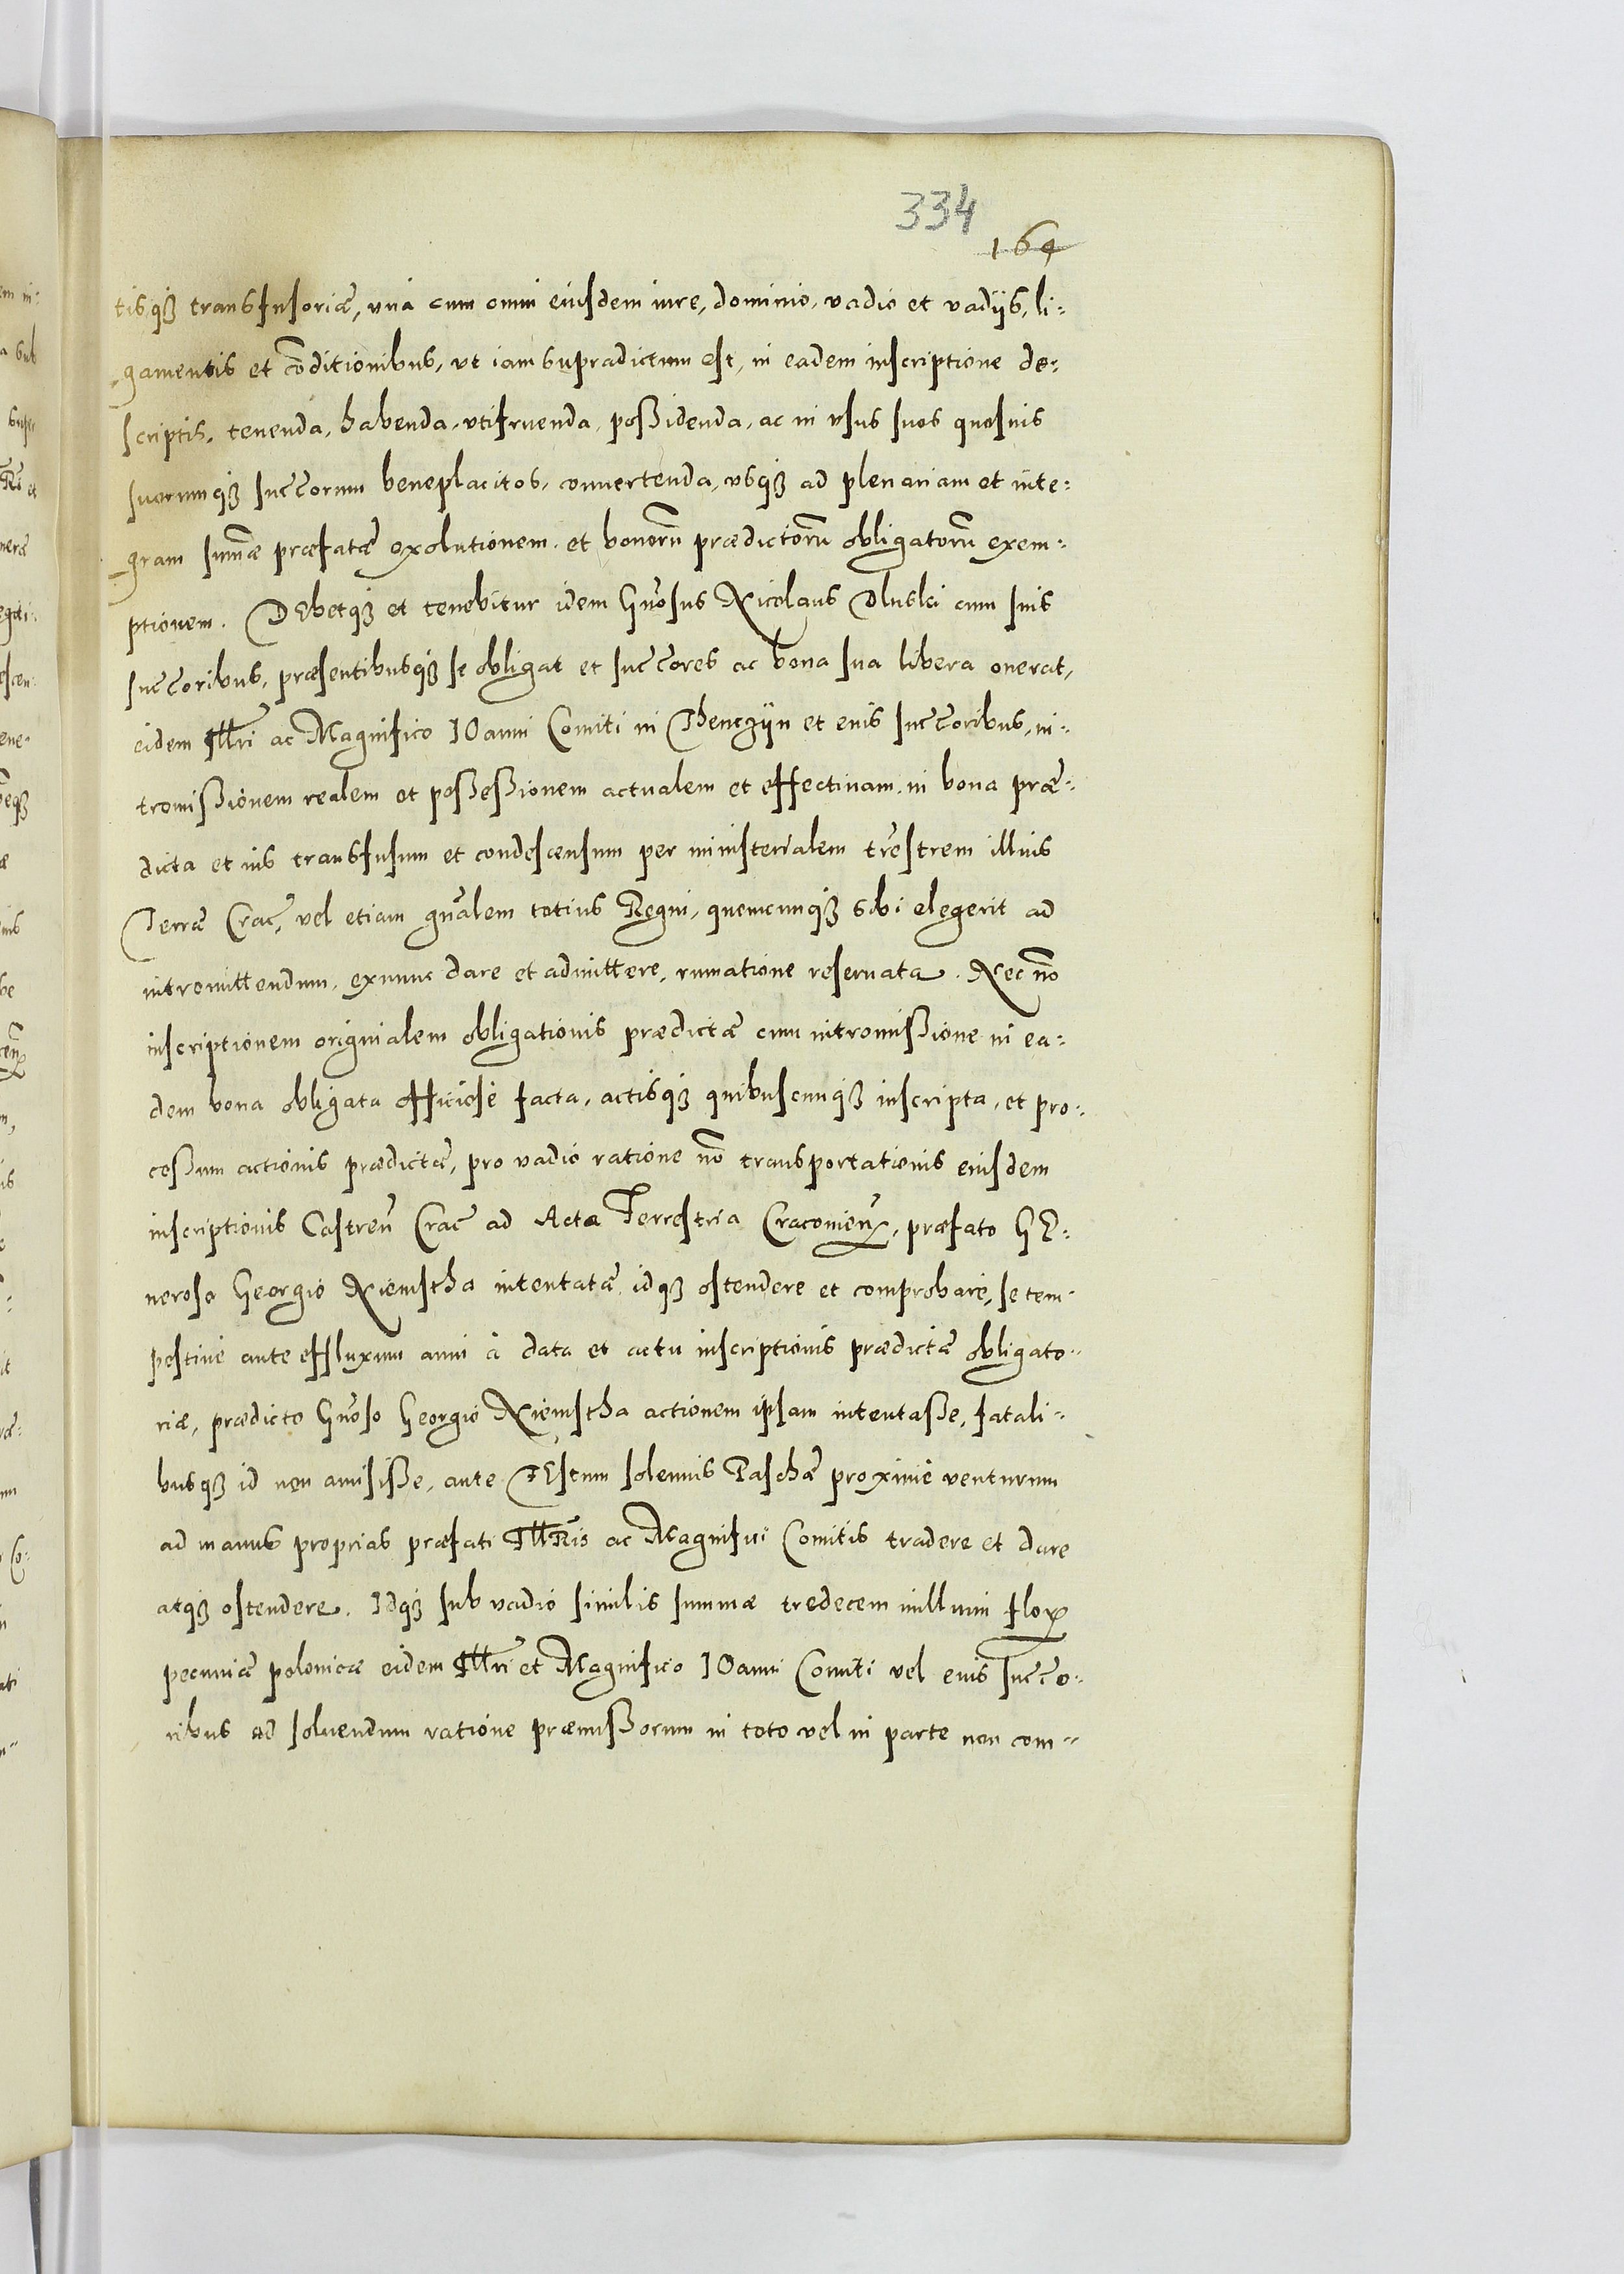 334
164
tisq3 transfusoriæ, una cum omni eiusdem iure, dominio, vadio et vadijs, li:
gamentis et cōditionibus, ut iam supradictum est, in eadem inscriptione de:
scriptis, tenenda, habenda, utifruenda, possidenda, ac in usus suos quosuis
suorumq3 succorum beneplacitos, convertenda, usq3 ad plenariam et inte:
gram sum̄æ præfatæ exolutionem et bonorū prædictorū obligatorū exem:
ptionem. DEbetq3 et tenebitur idem Gn̄osus Nicolaus Dluski cum suis
succoribus, præsentibusq3 se obligat et succores ac bona sua libera onerat,
eidem Illrī ac Magnifico IOanni Comiti in Thenczijn et euis succoribus, in:
tromissionem realem et possessionem actualem et effectiuam in bona præ:
dicta et ius transfusum et condescensum per ministerialem tr̄estrem illius
Terræ Crac̄, vel etiam gn̄alem totius Regni, quemcunq3 sibi elegerit ad
intromittendum, exnunc dare et admittere, rumatione reseruata. Nec nō
inscriptionem originalem obligationis prædictæ cum intromissione in ea:
dem bona obligata officiosè facta, actisq3 quibuscunq3 inscripta, et pro:
cessum actionis prædictæ, pro vadio ratione nō transportationis eiusdem
inscriptionis Castren̄ Crac̄ ad Acta Terrestria Cracouien̄, præfato GE:
neroso Georgio Niemstha intentatæ idq3 ostendere et comprobare, se tem:
pestiuè ante effluxum anni à data et actu inscriptionis prædictæ obligato:
riæ, prædicto Gn̄oso Georgio Niemstha actionem ipsam intentasse, fatali:
busq3 id non amisisse, ante FEstum solennis Paschæ proximè venturum
ad manus proprias præfati Illr̄is ac Magnifici Comitis tradere et dare
atq3 ostendere. Idq3 sub vadio similis summæ tredecem millium flor
pecuniæ polonicæ eidem Illrī et Magnifico IOanni Comiti vel euis succo:
ribus ad soluendum ratione præmissorum in toto vel in parte non com: